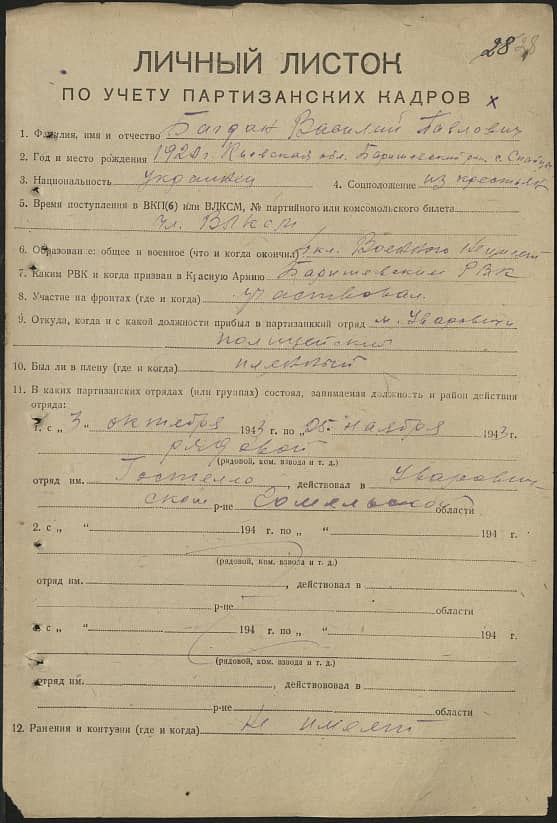 28
ЛИЧНЫЙ ЛИСТОК
ПО УЧЕТУ ПАРТИЗАНСКИХ КАДРОВ х
1. Фамилия, имя и отчество Багдан Василий Павлович
2. Год и место рождения 1920 г. Киевская обл. Баришевский р-н. с.
3. Национальность украинец 4. Соцположение из крестьян
5. Время поступления в ВКП(б) или ВЛКСМ, № партийного или комсомольского билета
чл. ВЛКСМ
6. Образование: общее и военное (что и когда окончил) кл. Военного
7. Каким РВК и когда призван в Красную Армию Баришевским РВК
8. Участие на фронтах (где и когда) участвовал.
9. Откуда, когда и с какой должности прибыл в партизанский отряд м. Уваровичи
полицейский
10. Был ли в плену (где и когда) пленный
11. В каких партизанских отрядах (или группах) состоял, занимаемая должность и район действия
отряда:
1. с „ 3 “ октября 1943 г. по „ 05 “ ноября 1943 г.
рядовой
(рядовой, ком. взвода и т. д.)
отряд им. Гостелло, действовал в Уварович-
ском р-не Гомельской области
2. с „ “ 194 г. по „ “ 194 г.
(рядовой, ком. взвода и т. д.)
отряд им. , действовал в
р-не области
3. с „ “ 194 г. по „ “ 194 г.
(рядовой, ком. взвода и т. д.)
отряд им. , действовал в
р-не области
12. Ранения и контузии (где и когда) не имеет